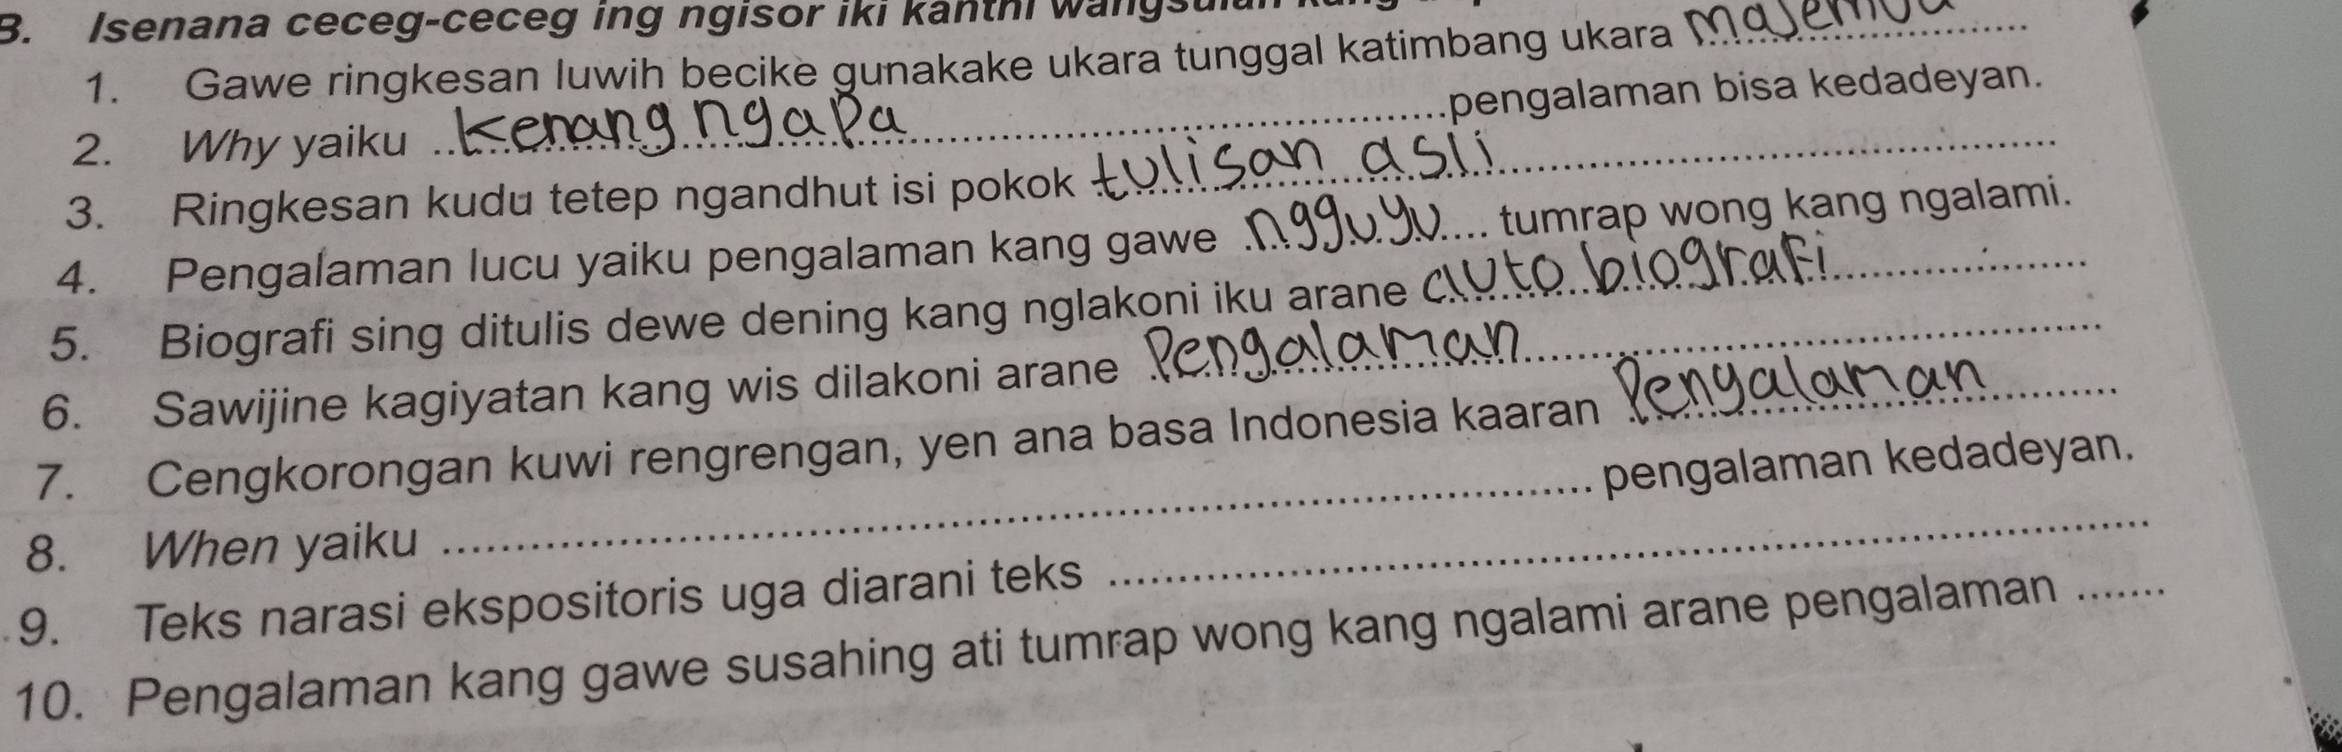 B. Isenana ceceg-ceceg ing ngisor iki kanthi
1. Gawe ringkesan luwih becike gunakake ukara tunggal katimbang ukara majemuu
2. Why yaiku ..kenang ngapa.......................pengalaman bisa kedadeyan.
3. Ringkesan kudu tetep ngandhut isi pokok tulisan asli...............
4. Pengalaman lucu yaiku pengalaman kang gawe .ngguyu.... tumrap wong kang ngalami.
5. Biografi sing ditulis dewe dening kang nglakoni iku arane auto biografi...............
6. Sawijine kagiyatan kang wis dilakoni arane Pengalaman...............
7. Cengkorongan kuwi rengrengan, yen ana basa Indonesia kaaran Pengalaman.......
8. When yaiku .............................................. pengalaman kedadeyan.
9. Teks narasi ekspositoris uga diarani teks ..............................................
10. Pengalaman kang gawe susahing ati tumrap wong kang ngalami arane pengalaman .......